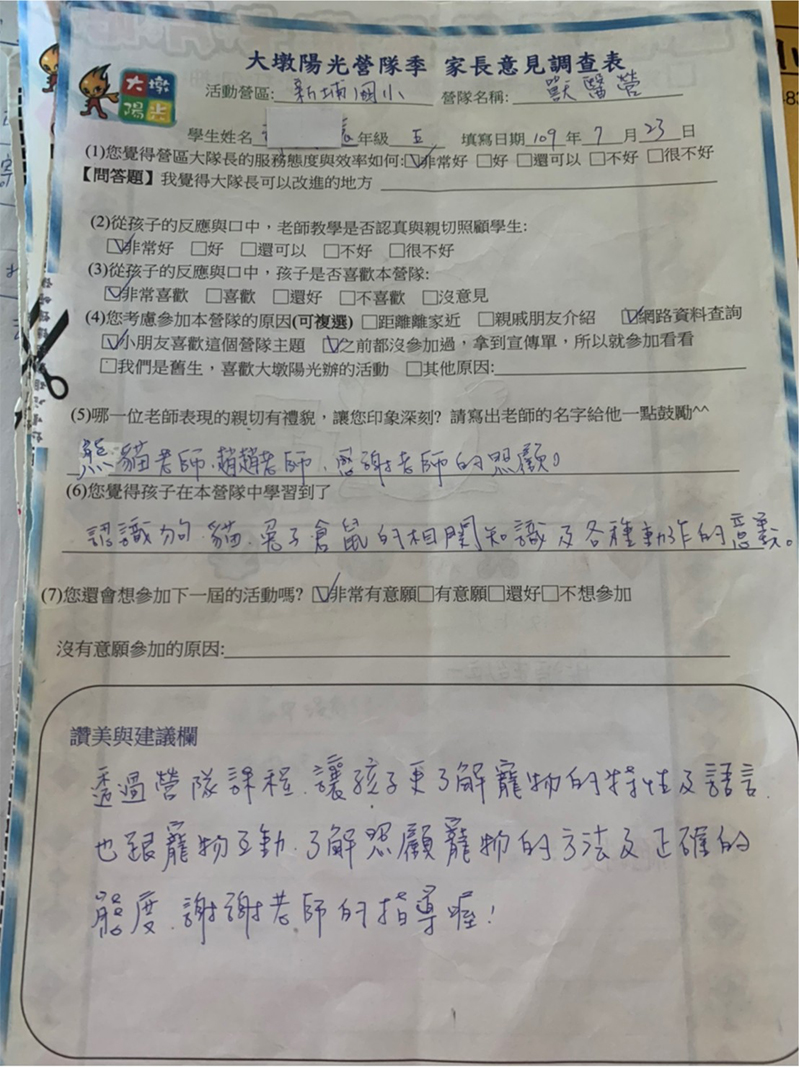 大墩陽光
大墩陽光營隊季 家長意見調查表
活動營區: 新埔國小 營隊名稱: 獸醫營
學生姓名 年級 五 填寫日期 109 年 7 月 23 日
(1)您覺得營區大隊長的服務態度與效率如何:☑非常好 □好 □還可以 □不好 □很不好
【問答題】我覺得大隊長可以改進的地方
(2)從孩子的反應與口中，老師教學是否認真與親切照顧學生:
☑非常好 □好 □還可以 □不好 □很不好
(3)從孩子的反應與口中，孩子是否喜歡本營隊:
☑非常喜歡 □喜歡 □還好 □不喜歡 □沒意見
(4)您考慮參加本營隊的原因(可複選) □距離離家近 □親戚朋友介紹 ☑網路資料查詢
☑小朋友喜歡這個營隊主題 ☑之前都沒參加過，拿到宣傳單，所以就參加看看
□我們是舊生，喜歡大墩陽光辦的活動 □其他原因:
(5)哪一位老師表現的親切有禮貌，讓您印象深刻? 請寫出老師的名字給他一點鼓勵^^
熊貓老師、趙趙老師、感謝老師的照顧。
(6)您覺得孩子在本營隊中學習到了
認識狗、貓、兔子倉鼠的相關知識及各種動作的意義。
(7)您還會想參加下一屆的活動嗎? ☑非常有意願□有意願□還好□不想參加
沒有意願參加的原因:
讚美與建議欄
透過營隊課程、讓孩子更了解寵物的特性及語言、
也跟寵物互動、了解照顧寵物的方法及正確的
態度、謝謝老師的指導喔!